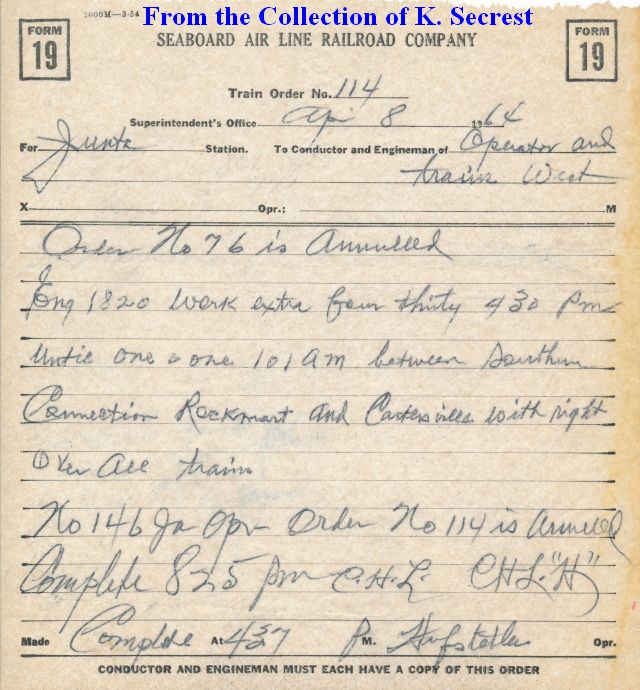 2000M—3-54 From the Collection of K. Secrest
FORM 19 SEABOARD AIR LINE RAILROAD COMPANY FORM 19
Train Order No. 114
Superintendent's Office Apr 8 1964
For Junta Station. To Conductor and Engineman of Operator and
trains West
X Opr.; M
Order No 76 is Annulled
Eng 1820 work extra four thirty 430 Pm
Until one o one 101 am between Southern
Connection Rockmart and Cartersville with right
Over All trains
No 146 Ja Opr Order No 114 is Annulled
Complete 825 pm C.H.L. CHL "H"
Made Complete At 437 P M. Hufstetler Opr.
CONDUCTOR AND ENGINEMAN MUST EACH HAVE A COPY OF THIS ORDER